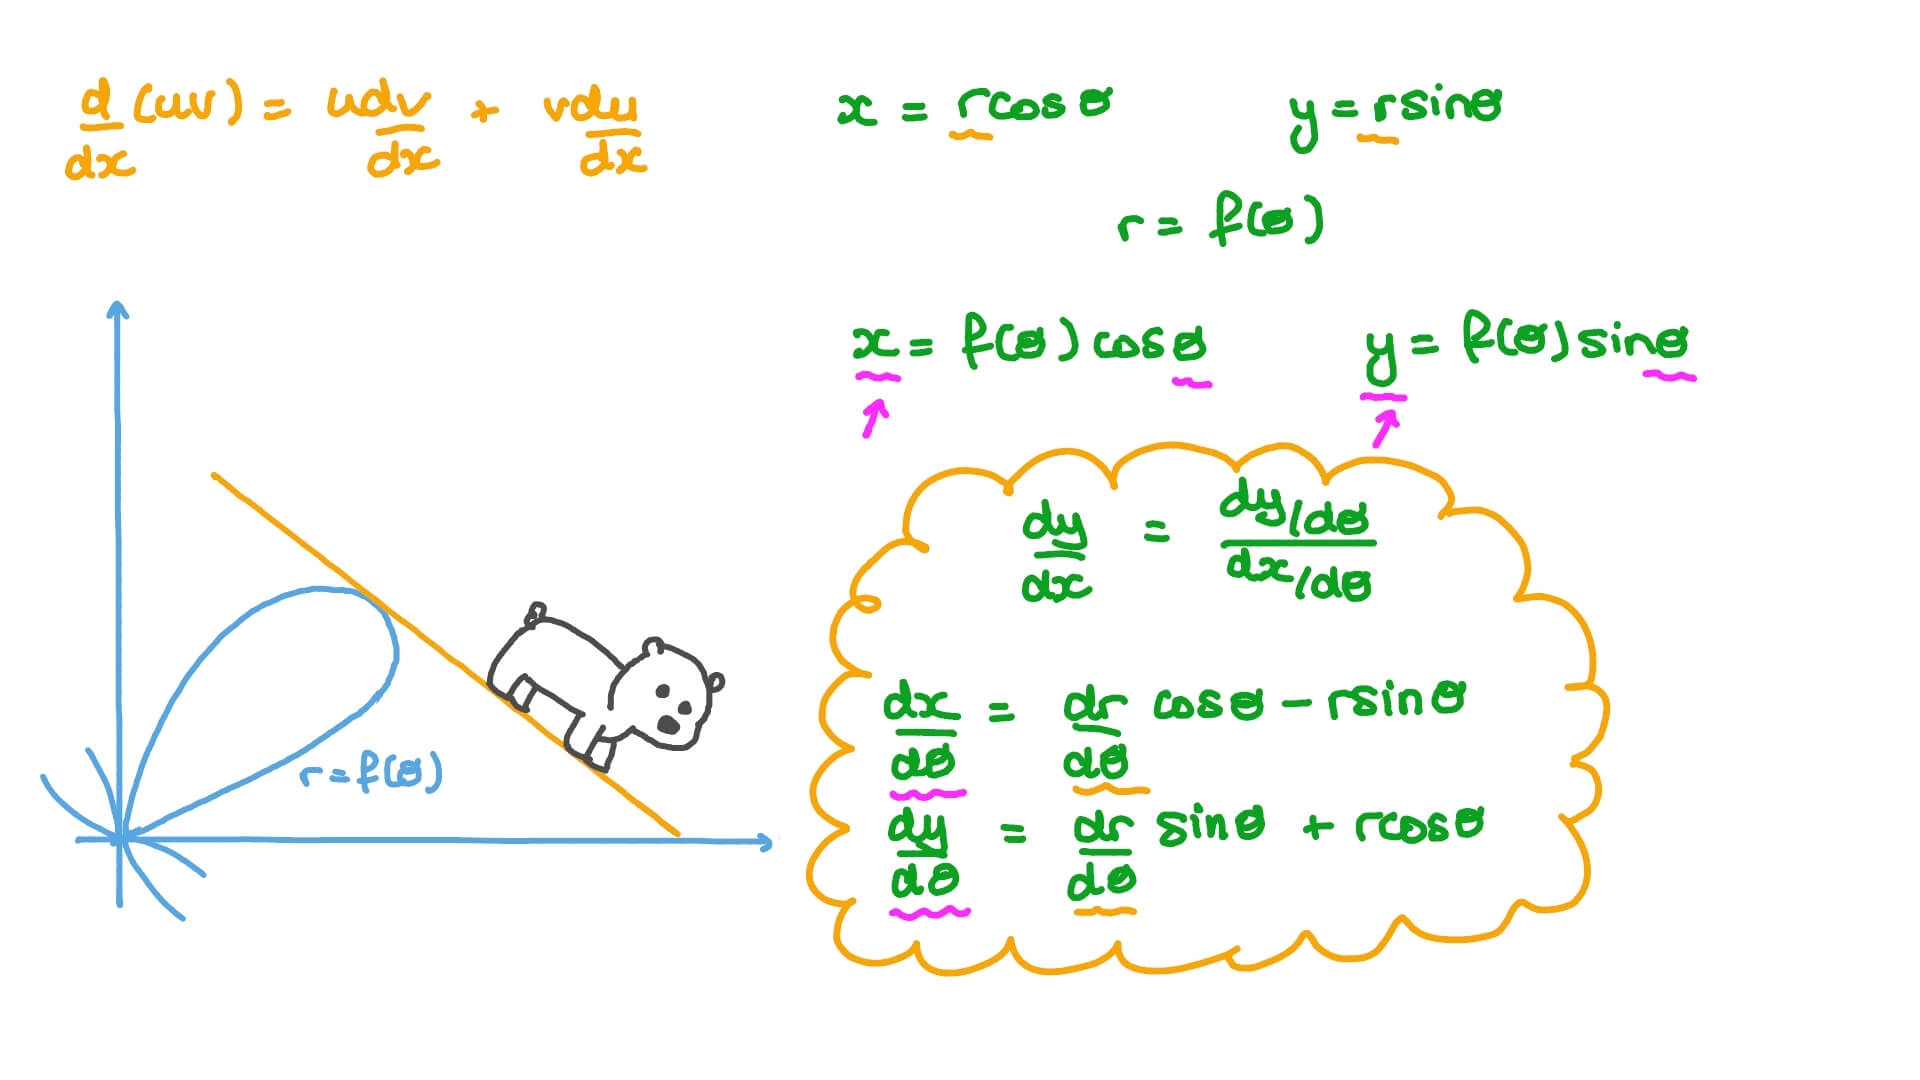 d/dx (uv) = udv/dx + vdu/dx
x = rcosθ
y = rsinθ
r = f(θ)
x = f(θ)cosθ
y = f(θ)sinθ
dy/dx = (dy/dθ)/(dx/dθ)
dx/dθ = dr/dθ cosθ − rsinθ
dy/dθ = dr/dθ sinθ + rcosθ
r=f(θ)